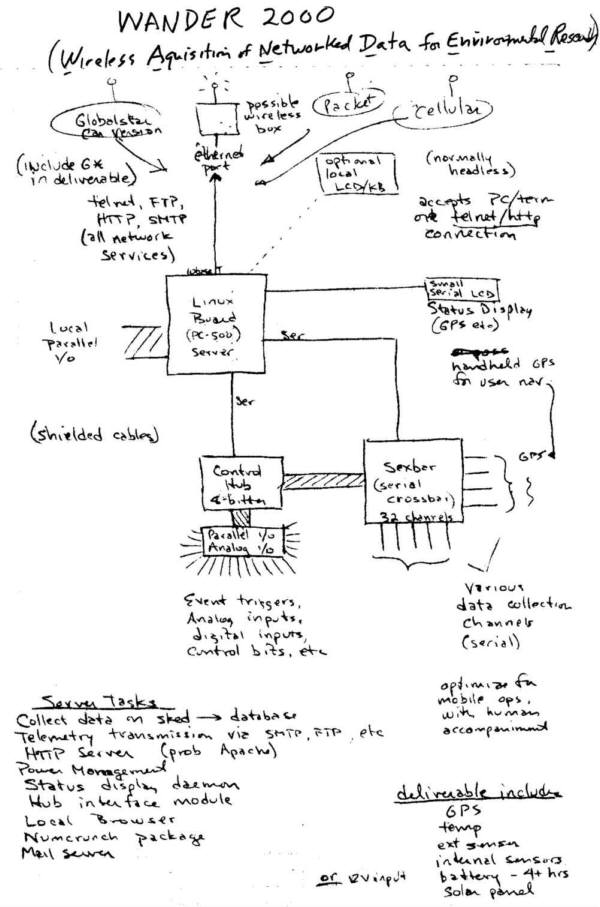 WANDER 2000
(Wireless Aquisition of Networked Data for Environmental Research)
Globalstar
Car Version
possible
wireless
box
Packet
Cellular
(include G*
in deliverable)
ethernet
port
optional
local
LCD/KB
(normally
headless)
telnet, FTP,
HTTP, SMTP
(all network
services)
accepts PC/term
or telnet/http
connection
10base T
Linux
Board
(PC-500)
Server
small
serial LCD
Status Display
(GPS etc.)
Local
Parallel
I/o
Ser
handheld GPS
for user nav.
Ser
(shielded cables)
Control
Hub
4-bitter
Sexbar
(serial
crossbar)
32 channels
GPS
Parallel I/o
Analog I/o
Event triggers,
Analog inputs,
digital inputs,
Control bits, etc
Various
data collection
channels
(serial)
optimize for
mobile ops,
with human
accompaniment
Server Tasks
Collect data on sked → database
Telemetry transmission via SMTP, FTP, etc
HTTP Server (prob Apache)
Power Management
Status display daemon
Hub interface module
Local Browser
Numcrunch package
Mail server
deliverable includes
GPS
temp
ext sensor
internal sensors
or 12V input
battery - 4+ hrs
Solar panel